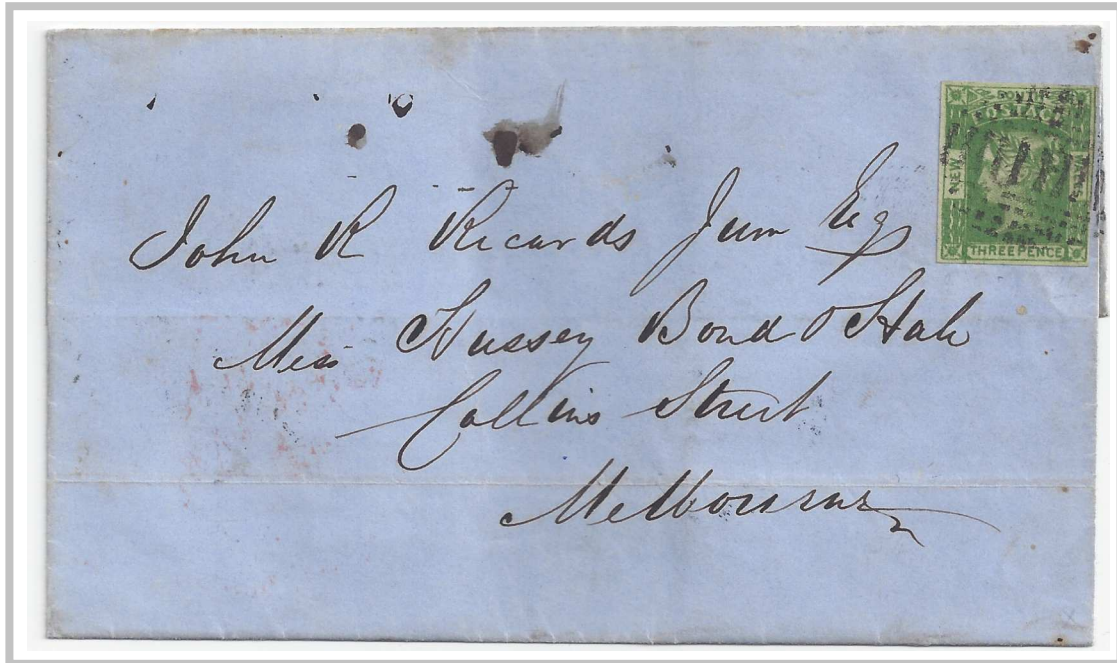 POSTAGE
NEW
THREE PENCE
John R Ricards Junr Esq
Messrs Hussey Bond & Hale
Collins Street
Melbourne